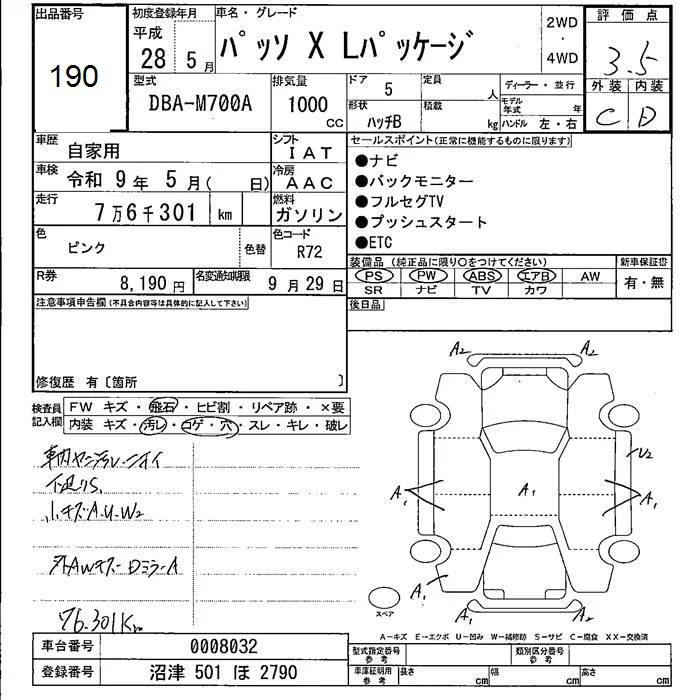 出品番号
190
初度登録年月
平成
28 5月
車名・グレード
パッソ X Lパッケージ
2WD
・
4WD
評価点
3.5
外装 内装
C D
型式
DBA-M700A
排気量
1000
CC
ドア 5
形状
ハッチB
定員
人
積載
kg
ディーラー・並行
モデル年式
年
ハンドル 左・右
車歴
自家用
シフト
IAT
車検
令和 9年 5月( 日)
冷房
AAC
走行
7万6千301 km
燃料
ガソリン
色
ピンク
色替
色コード
R72
R券
8,190円
名変通知期限
9月29日
セールスポイント(正常に機能するものに限ります)
●ナビ
●バックモニター
●フルセグTV
●プッシュスタート
●ETC
装備品 (純正品に限り○をつけてください)
PS PW ABS エアB AW
SR ナビ TV カワ
新車保証書
有・無
後日品
注意事項申告欄(不具合内容等は具体的に記入して下さい)
修復歴 有〔箇所 〕
検査員記入欄
FW キズ・飛石・ヒビ割・リペア跡・×要
内装 キズ・汚レ・コゲ・穴・スレ・キレ・破レ
車内ヤニ汚レ・ニオイ
下廻りS
小キズA.U.W2
外AWキズ-DミラーA
76.301Km
A2 A2
U2
A1 A1 A1
A1
A1 A1
スペア
A-キズ E-エクボ U-凹み W-補修跡 S-サビ C-腐食 XX-交換済
車台番号 0008032
登録番号 沼津 501 ほ 2790
型式指定番号
参考
類別区分番号
参考
車庫証明用
参考
長さ cm 幅 cm 高さ cm